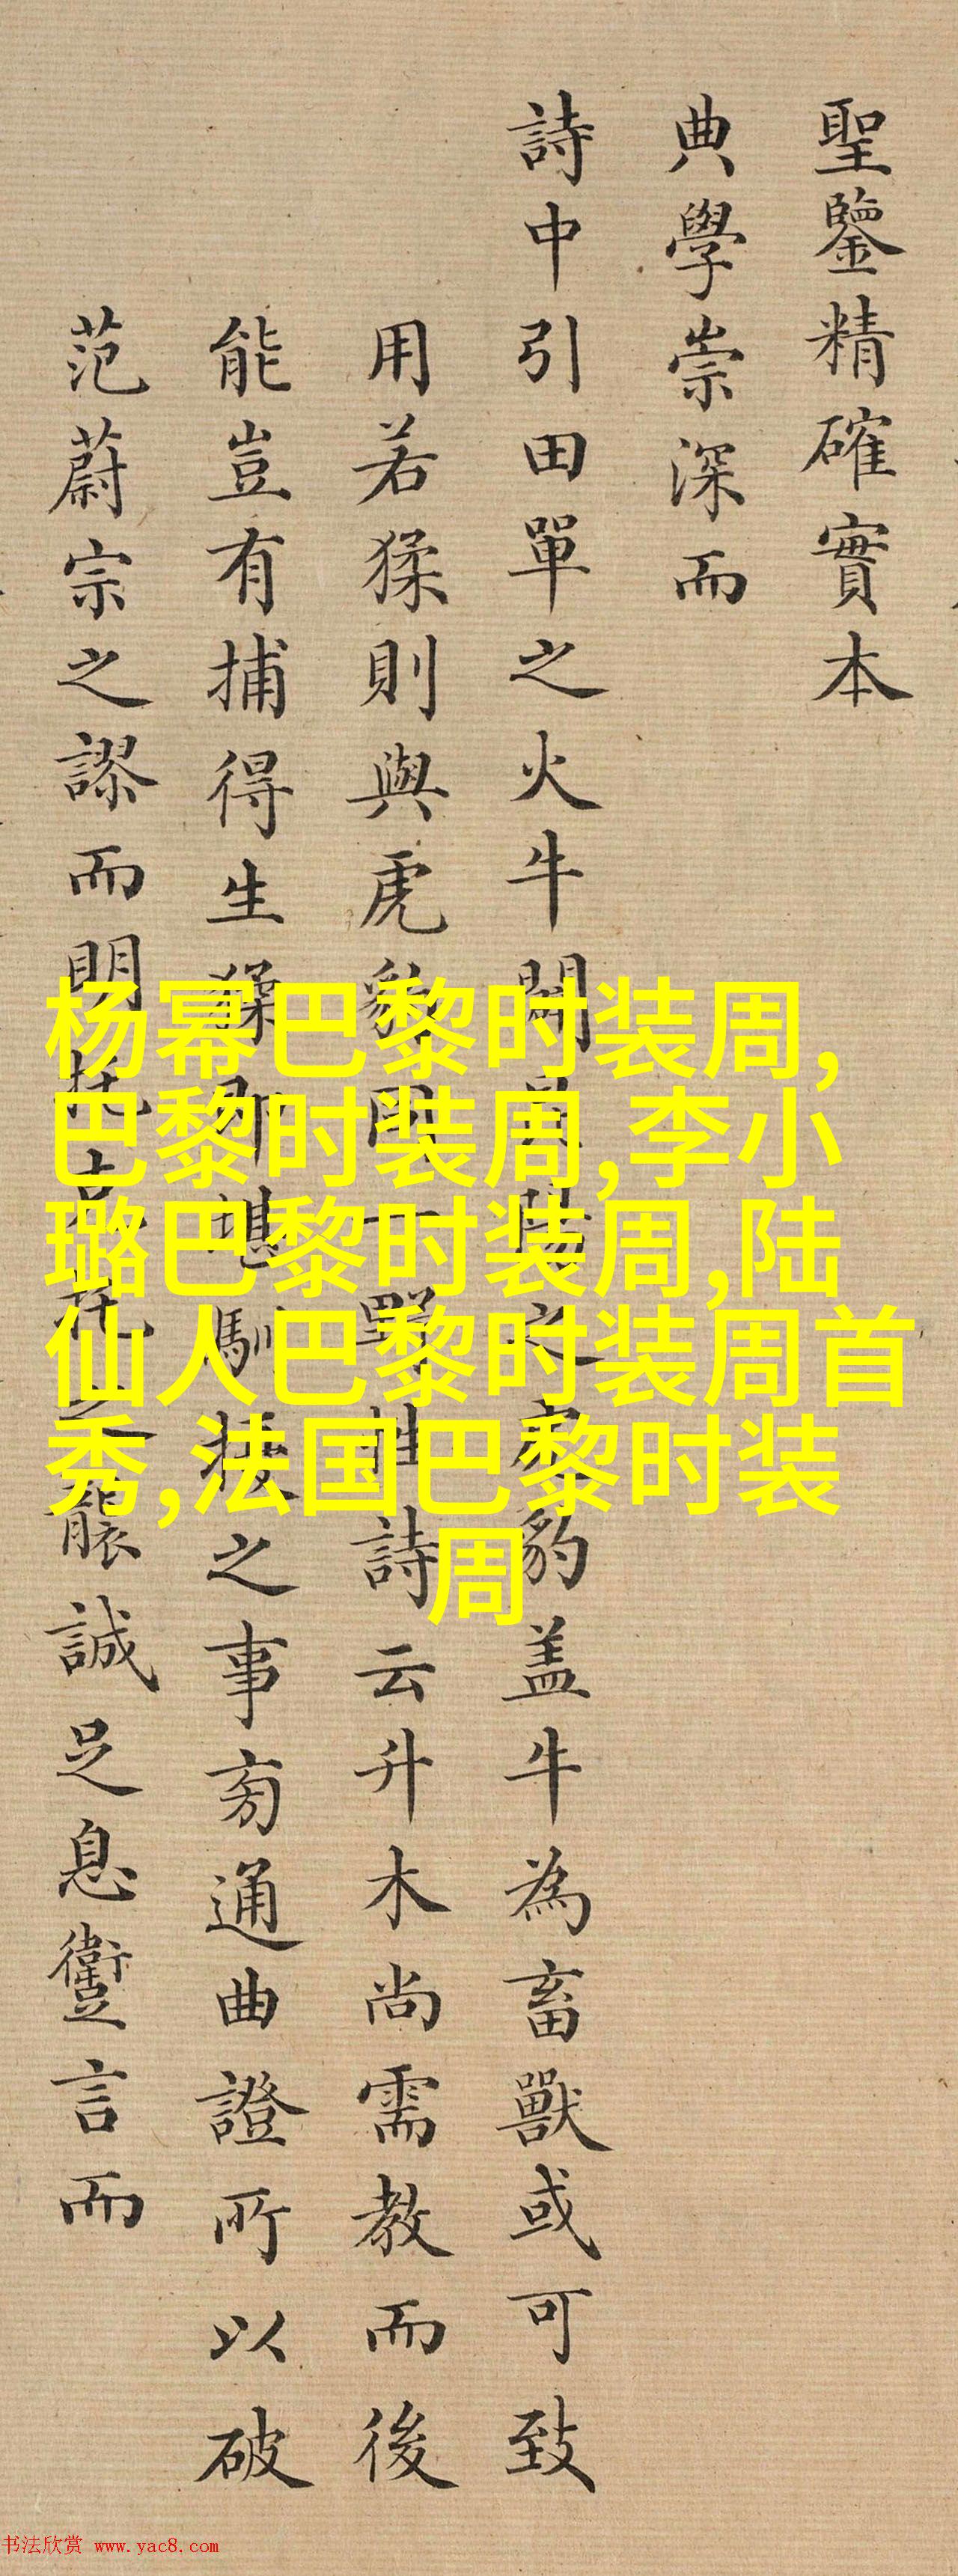 聖鑒精確實本
典學崇深而
詩中引田單之火牛闘昆陽之虎豹盖牛為畜獸或可致
用若猱則與虎豹同一野性詩云升木尚需教而後
能豈有捕得生猱即堪馴擾之事旁通曲證所以破
范蔚宗之謬而明
襲誠足息躗言而
杨幂巴黎时装周,
巴黎时装周,李小
璐巴黎时装周,陆
仙人巴黎时装周首
秀,法国巴黎时装
周
书法欣赏 www.yac8.com